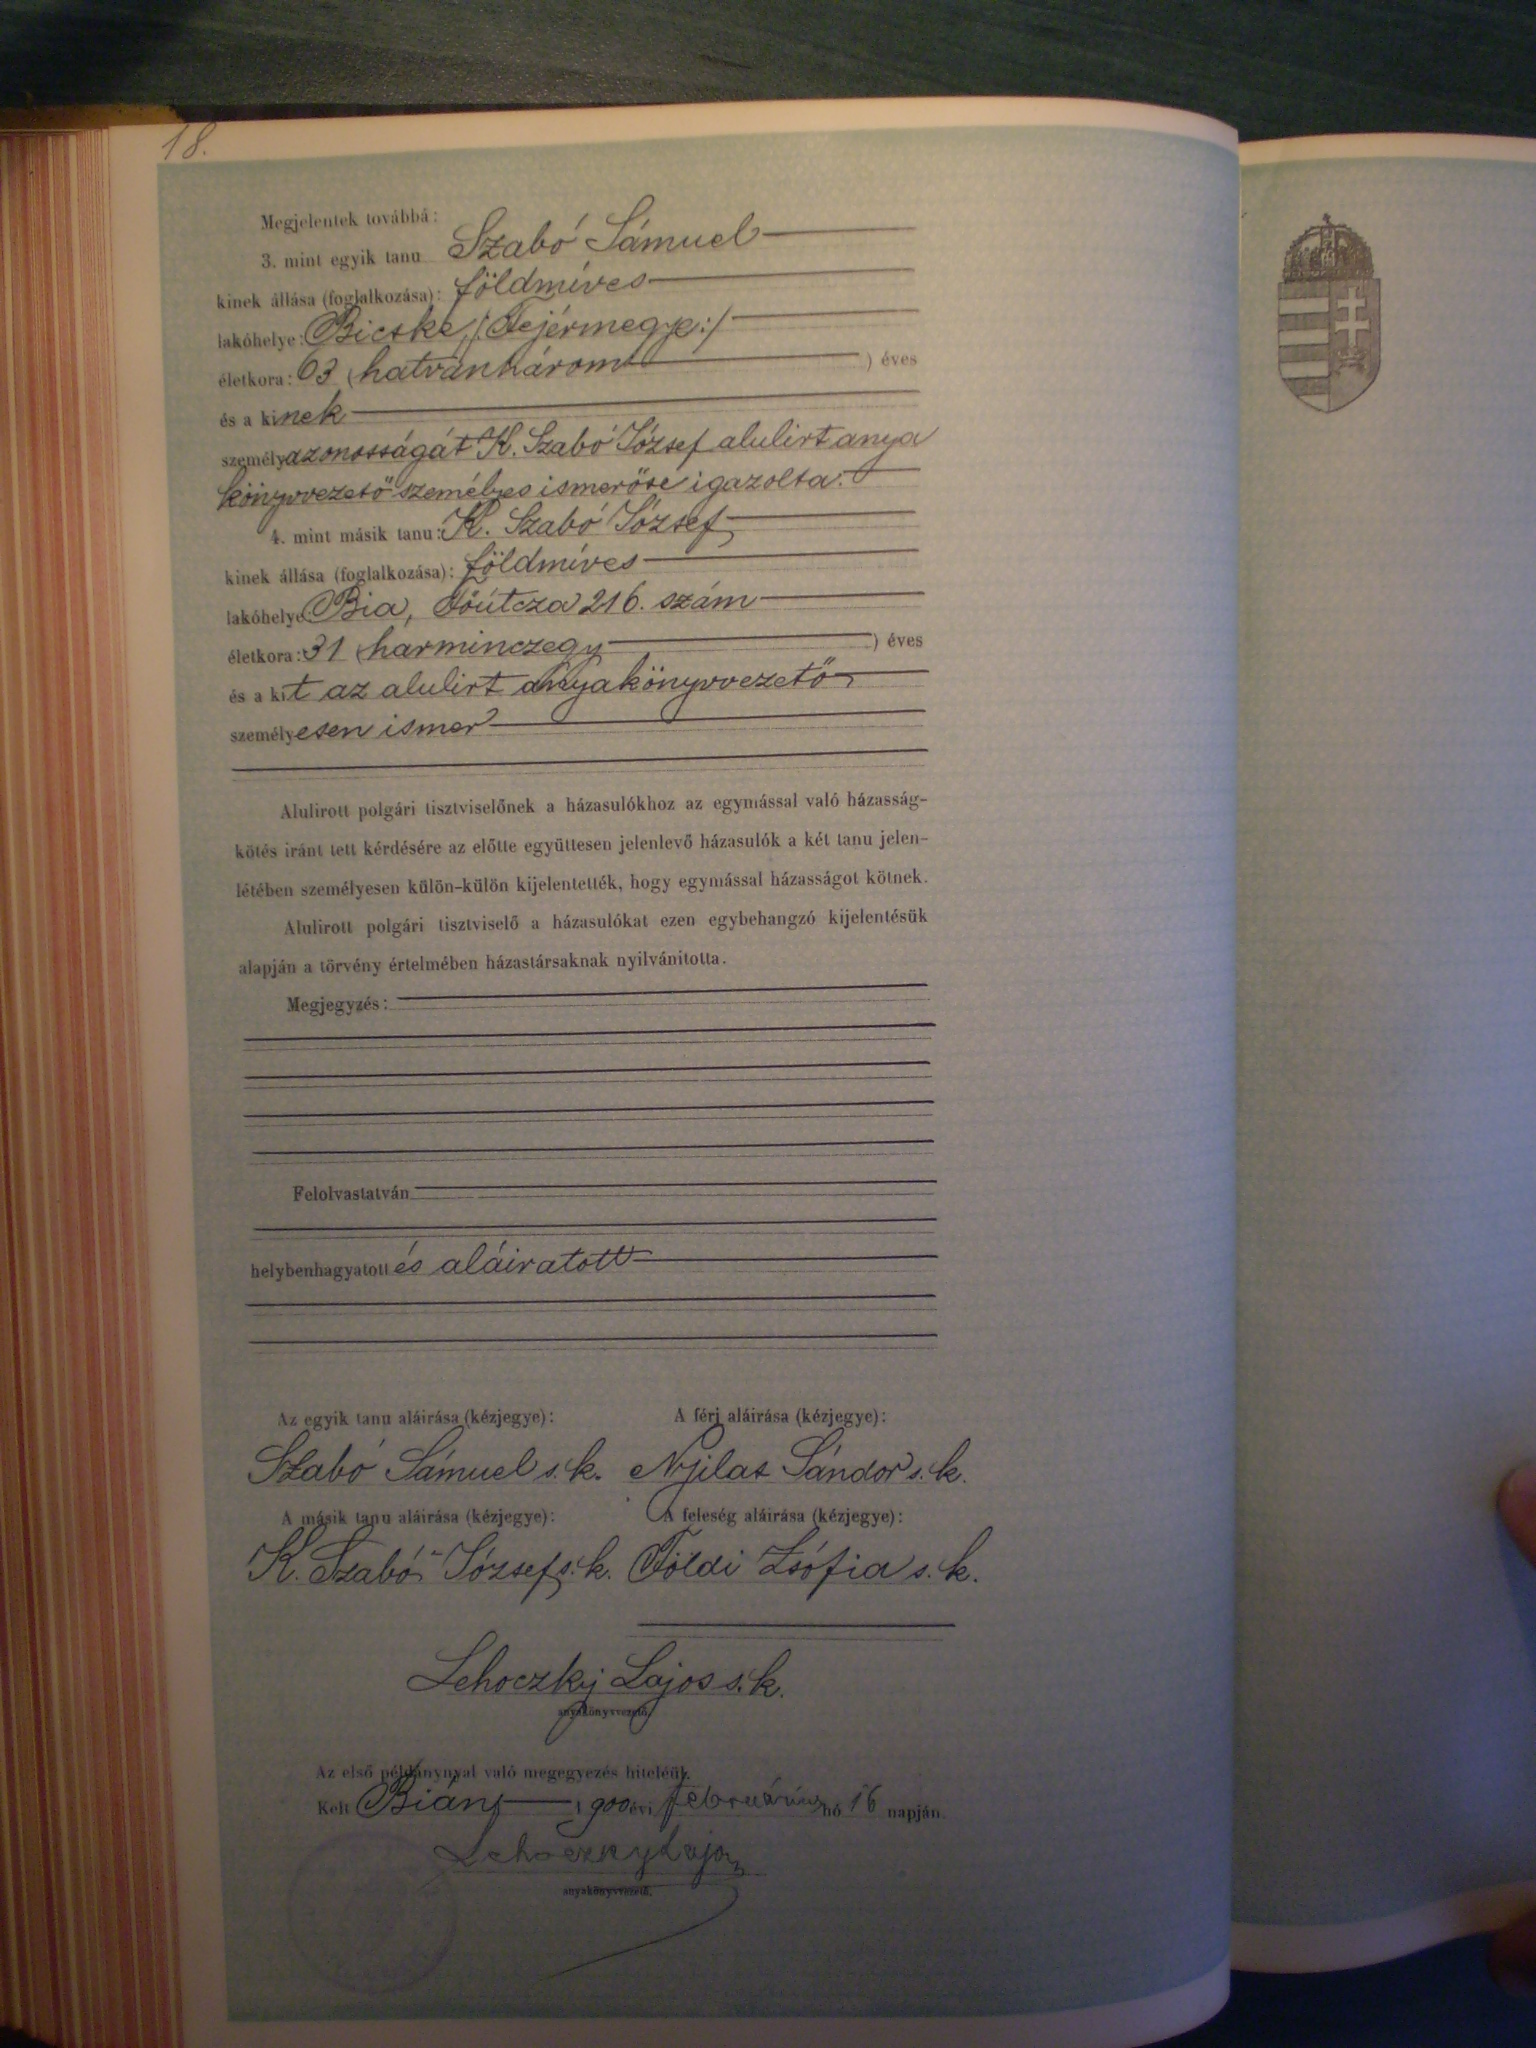 18.
Megjelentek továbbá:
3. mint egyik tanu Szabó Sámuel
kinek állása (foglalkozása): földmíves
lakóhelye: Bicske, /:Fejérmegye:/
életkora: 63 (hatvanhárom ) éves
és a kinek
személyazonosságát K. Szabó József alulirt anya
könyvvezető személyes ismerőse igazolta.
4. mint másik tanu: K. Szabó József
kinek állása (foglalkozása): földmíves
lakóhelye Bia, Főútcza 216. szám
életkora: 31 (harminczegy ) éves
és a kit az alulirt anyakönyvvezető
személyesen ismer
Alulirott polgári tisztviselőnek a házasulókhoz az egymással való házasság-
kötés iránt tett kérdésére az előtte együttesen jelenlevő házasulók a két tanu jelen-
létében személyesen külön-külön kijelentették, hogy egymással házasságot kötnek.
Alulirott polgári tisztviselő a házasulókat ezen egybehangzó kijelentésük
alapján a törvény értelmében házastársaknak nyilvánitotta.
Megjegyzés:
Felolvastatván
helybenhagyatott és aláiratott
Az egyik tanu aláirása (kézjegye): A férj aláirása (kézjegye):
Szabó Sámuel s. k. Nyilas Sándor s. k.
A másik tanu aláirása (kézjegye): A feleség aláirása (kézjegye):
K. Szabó József s. k. Földi Zsófia s. k.
Lehoczky Lajos s. k.
anyakönyvvezető.
Az első példánynyal való megegyezés hiteléül.
Kelt Bián, 1900 évi február hó 16 napján
Lehoczky Lajos
anyakönyvvezető.